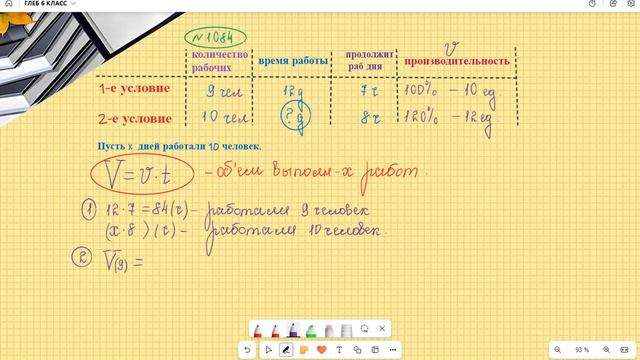 ГЛЕБ 6 КЛАСС
№1084
количество рабочих
время работы
продолжит раб дня
v
производительность
1-е условие 9 чел 12д 7ч 100% - 10 ед.
2-е условие 10 чел ? д 8ч 120% - 12 ед.
Пусть x дней работали 10 человек.
V = v · t. - объём выполн-х работ.
① 12 · 7 = 84(ч) - работали 9 человек
(x · 8 ) (ч) - работали 10 человек.
② V(9) =
93 %